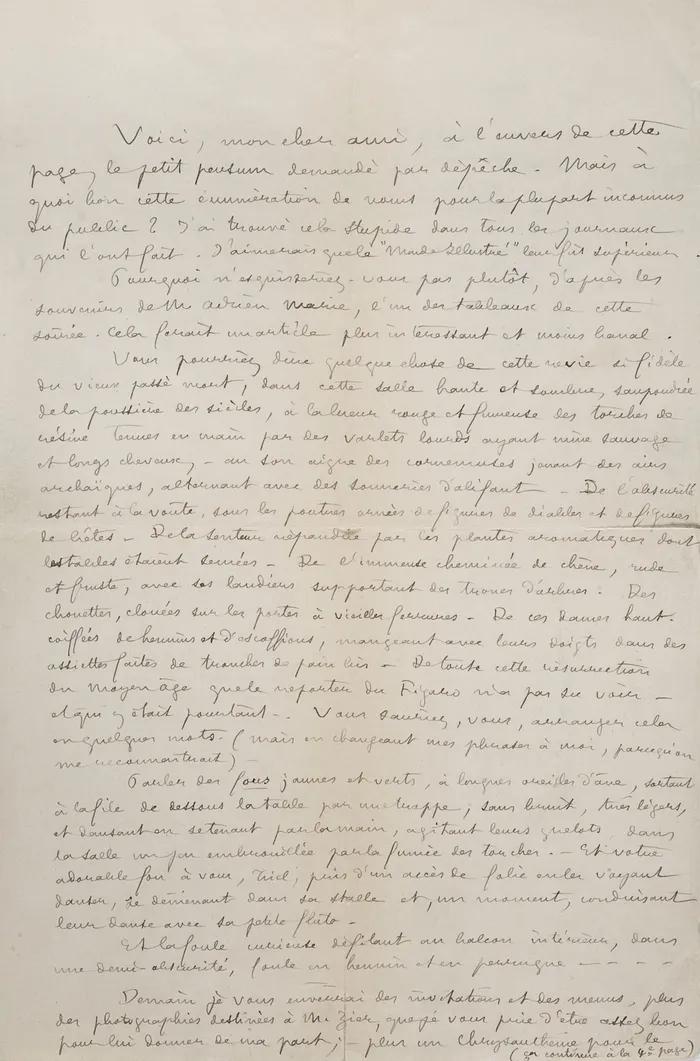 Voici, mon cher ami, à l'envers de cette
page, le petit pensum demandé par dépêche. Mais à
quoi bon cette énumération de noms pour la plupart inconnus
du public ? J'ai trouvé cela stupide dans tous les journaux
qui l'ont fait. J'aimerais que le "Monde Illustré" leur fût supérieur.
Pourquoi n'esquisseriez-vous pas plutôt, d'après les
souvenirs de M. Adrien Marie, l'un des tableaux de cette
soirée. Cela ferait un article plus intéressant et moins banal.
Vous pourriez dire quelque chose de cette revie si fidèle
du vieux passé mort, dans cette salle haute et sombre, saupoudrée
de la poussière des siècles, à la lueur rouge et fumeuse des torches de
résine tenues en main par des varlets lourds ayant mine sauvage
et longs cheveux, - au son aigre des cornemuses jouant des airs
archaïques, alternant avec des sonneries d'olifant - De l'obscurité
restant à la voûte, sous les poutres ornées de figures de diables et de figures
de bêtes - De la senteur répandue par les plantes aromatiques dont
les tables étaient semées - De l'immense cheminée de chêne, rude
et fruste, avec ses landiers supportant des troncs d'arbres. Des
chouettes, clouées sur les portes à vieilles ferrures - De ces dames haut-
coiffées de hennins et d'escoffions, mangeant avec leurs doigts dans des
assiettes faites de tranches de pain bis - De toute cette résurrection
du Moyen âge que le reporter du Figaro n'a pas su voir -
et qui y était pourtant - . Vous sauriez, vous, arranger cela
en quelques mots. (mais en changeant mes phrases à moi, parcequ'on
me reconnaîtrait) -
Parler des fous jaunes et verts, à longues oreilles d'âne, sortant
à la file de dessous la table par une trappe, sans bruit, très légers,
et dansant en se tenant par la main, agitant leurs grelots, dans
la salle un peu embrouillée par la fumée des torches. - Et votre
adorable fou à vous, pris d'un accès de folie en les voyant
danser, se démenant dans sa stalle et, un moment, conduisant
leur danse avec sa petite flûte -
Et la foule curieuse défilant au balcon intérieur, dans
une demi-obscurité, foule en hennin et en perruque - - - -
Demain je vous enverrai des invitations et des menus, plus
des photographies destinées à M. Zier, que je vous prie d'être assez bon
pour lui donner de ma part; - plus un Chrysanthème pour le
(ça continue à la 4e page)